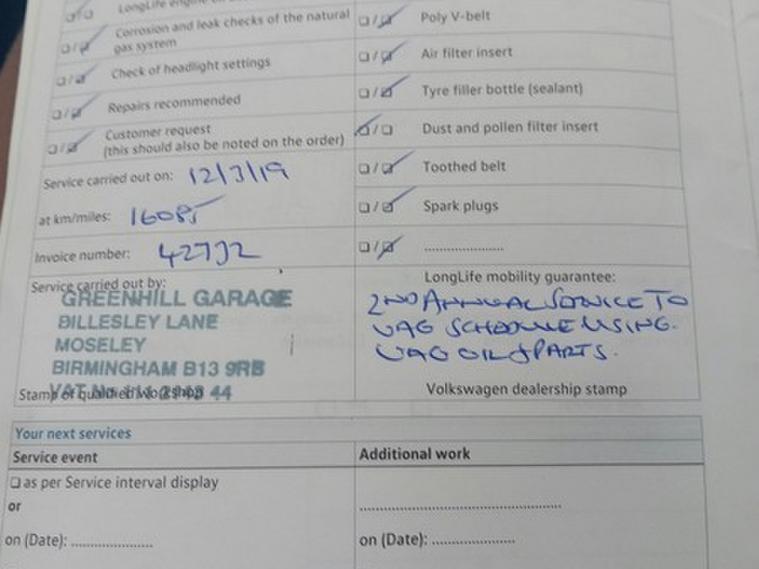 LongLife engine oil
Corrosion and leak checks of the natural
gas system
Check of headlight settings
Repairs recommended
Customer request
(this should also be noted on the order)
Service carried out on: 12/3/19
at km/miles: 16085
Invoice number:
Service carried out by:
GREENHILL GARAGE
BILLESLEY LANE
MOSELEY
BIRMINGHAM B13 9RB
VAT No 44
Stamp of qualified workshop
Poly V-belt
Air filter insert
Tyre filler bottle (sealant)
Dust and pollen filter insert
Toothed belt
Spark plugs
......................
LongLife mobility guarantee:
2ND ANNUAL SERVICE TO
VAG SCHEDULE USING.
VAG OIL & PARTS.
Volkswagen dealership stamp
Your next services
Service event
Additional work
as per Service interval display
or
on (Date): ......................
......................................................
on (Date): ......................